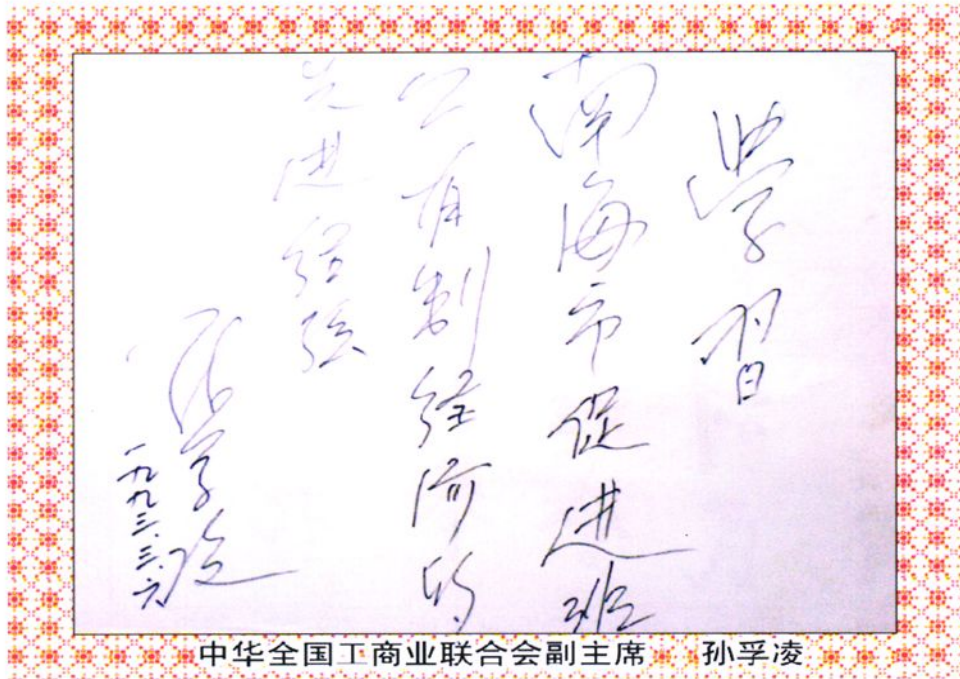 學習
南海市促进非
公有制经济的
先进经验
孙孚凌
一九九三.三.六
中华全国工商业联合会副主席 孙孚凌